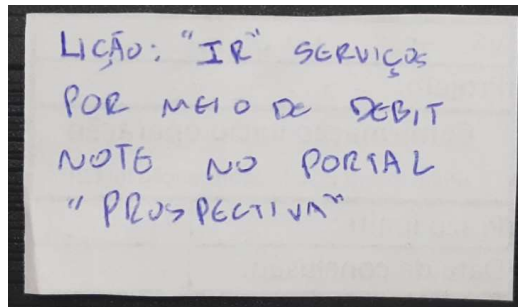 LIÇÃO: "IR" SERVIÇOS
POR MEIO DE DEBIT
NOTE NO PORTAL
"PROSPECTIVA"